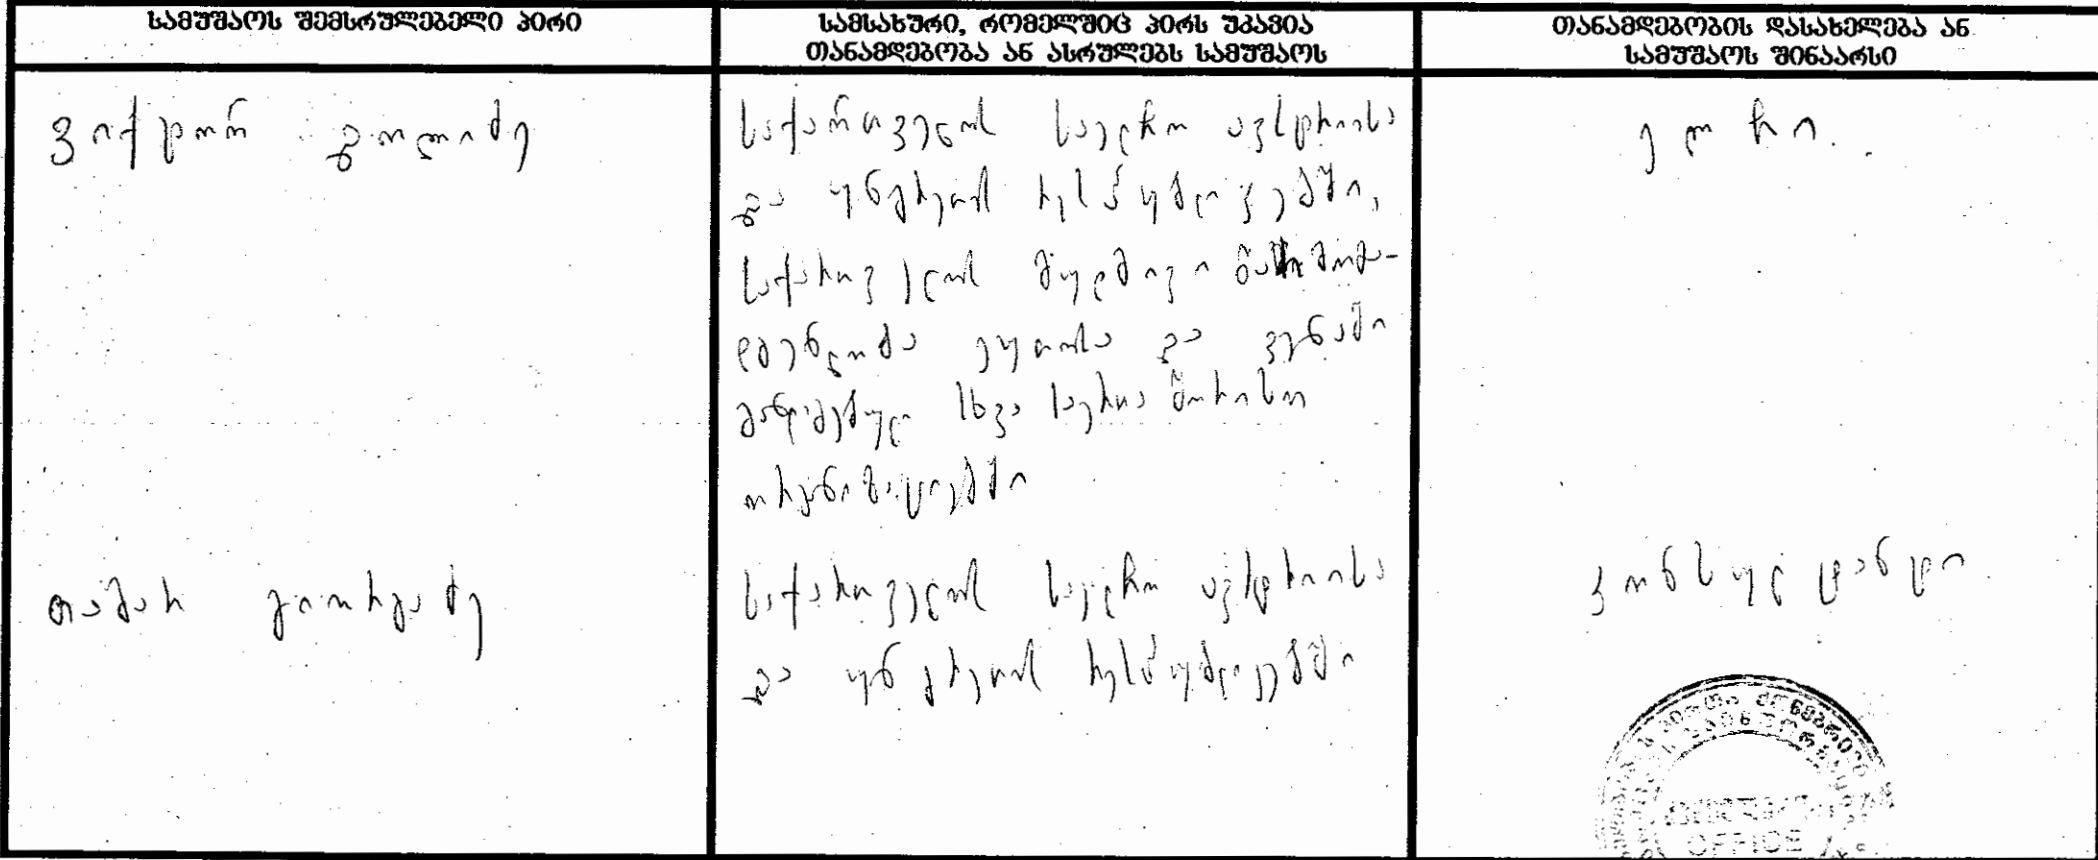 სამუშაოს შემსრულებელი პირი
სამსახური, რომელშიც პირს უკავია
თანამდებობა ან ასრულებს სამუშაოს
თანამდებობის დასახელება ან
სამუშაოს შინაარსი
ვიქტორ დოლიძე
საქართველოს საელჩო ავსტრიისა
და უნგრეთის რესპუბლიკებში,
საქართველოს მუდმივი წარმომა-
დგენლობა ეუთოსა და ვენაში
განლაგებულ სხვა საერთაშორისო
ორგანიზაციებში
ელჩი
თამარ გიორგაძე
საქართველოს საელჩო ავსტრიისა
და უნგრეთის რესპუბლიკებში
კონსულტანტი
OFFICE